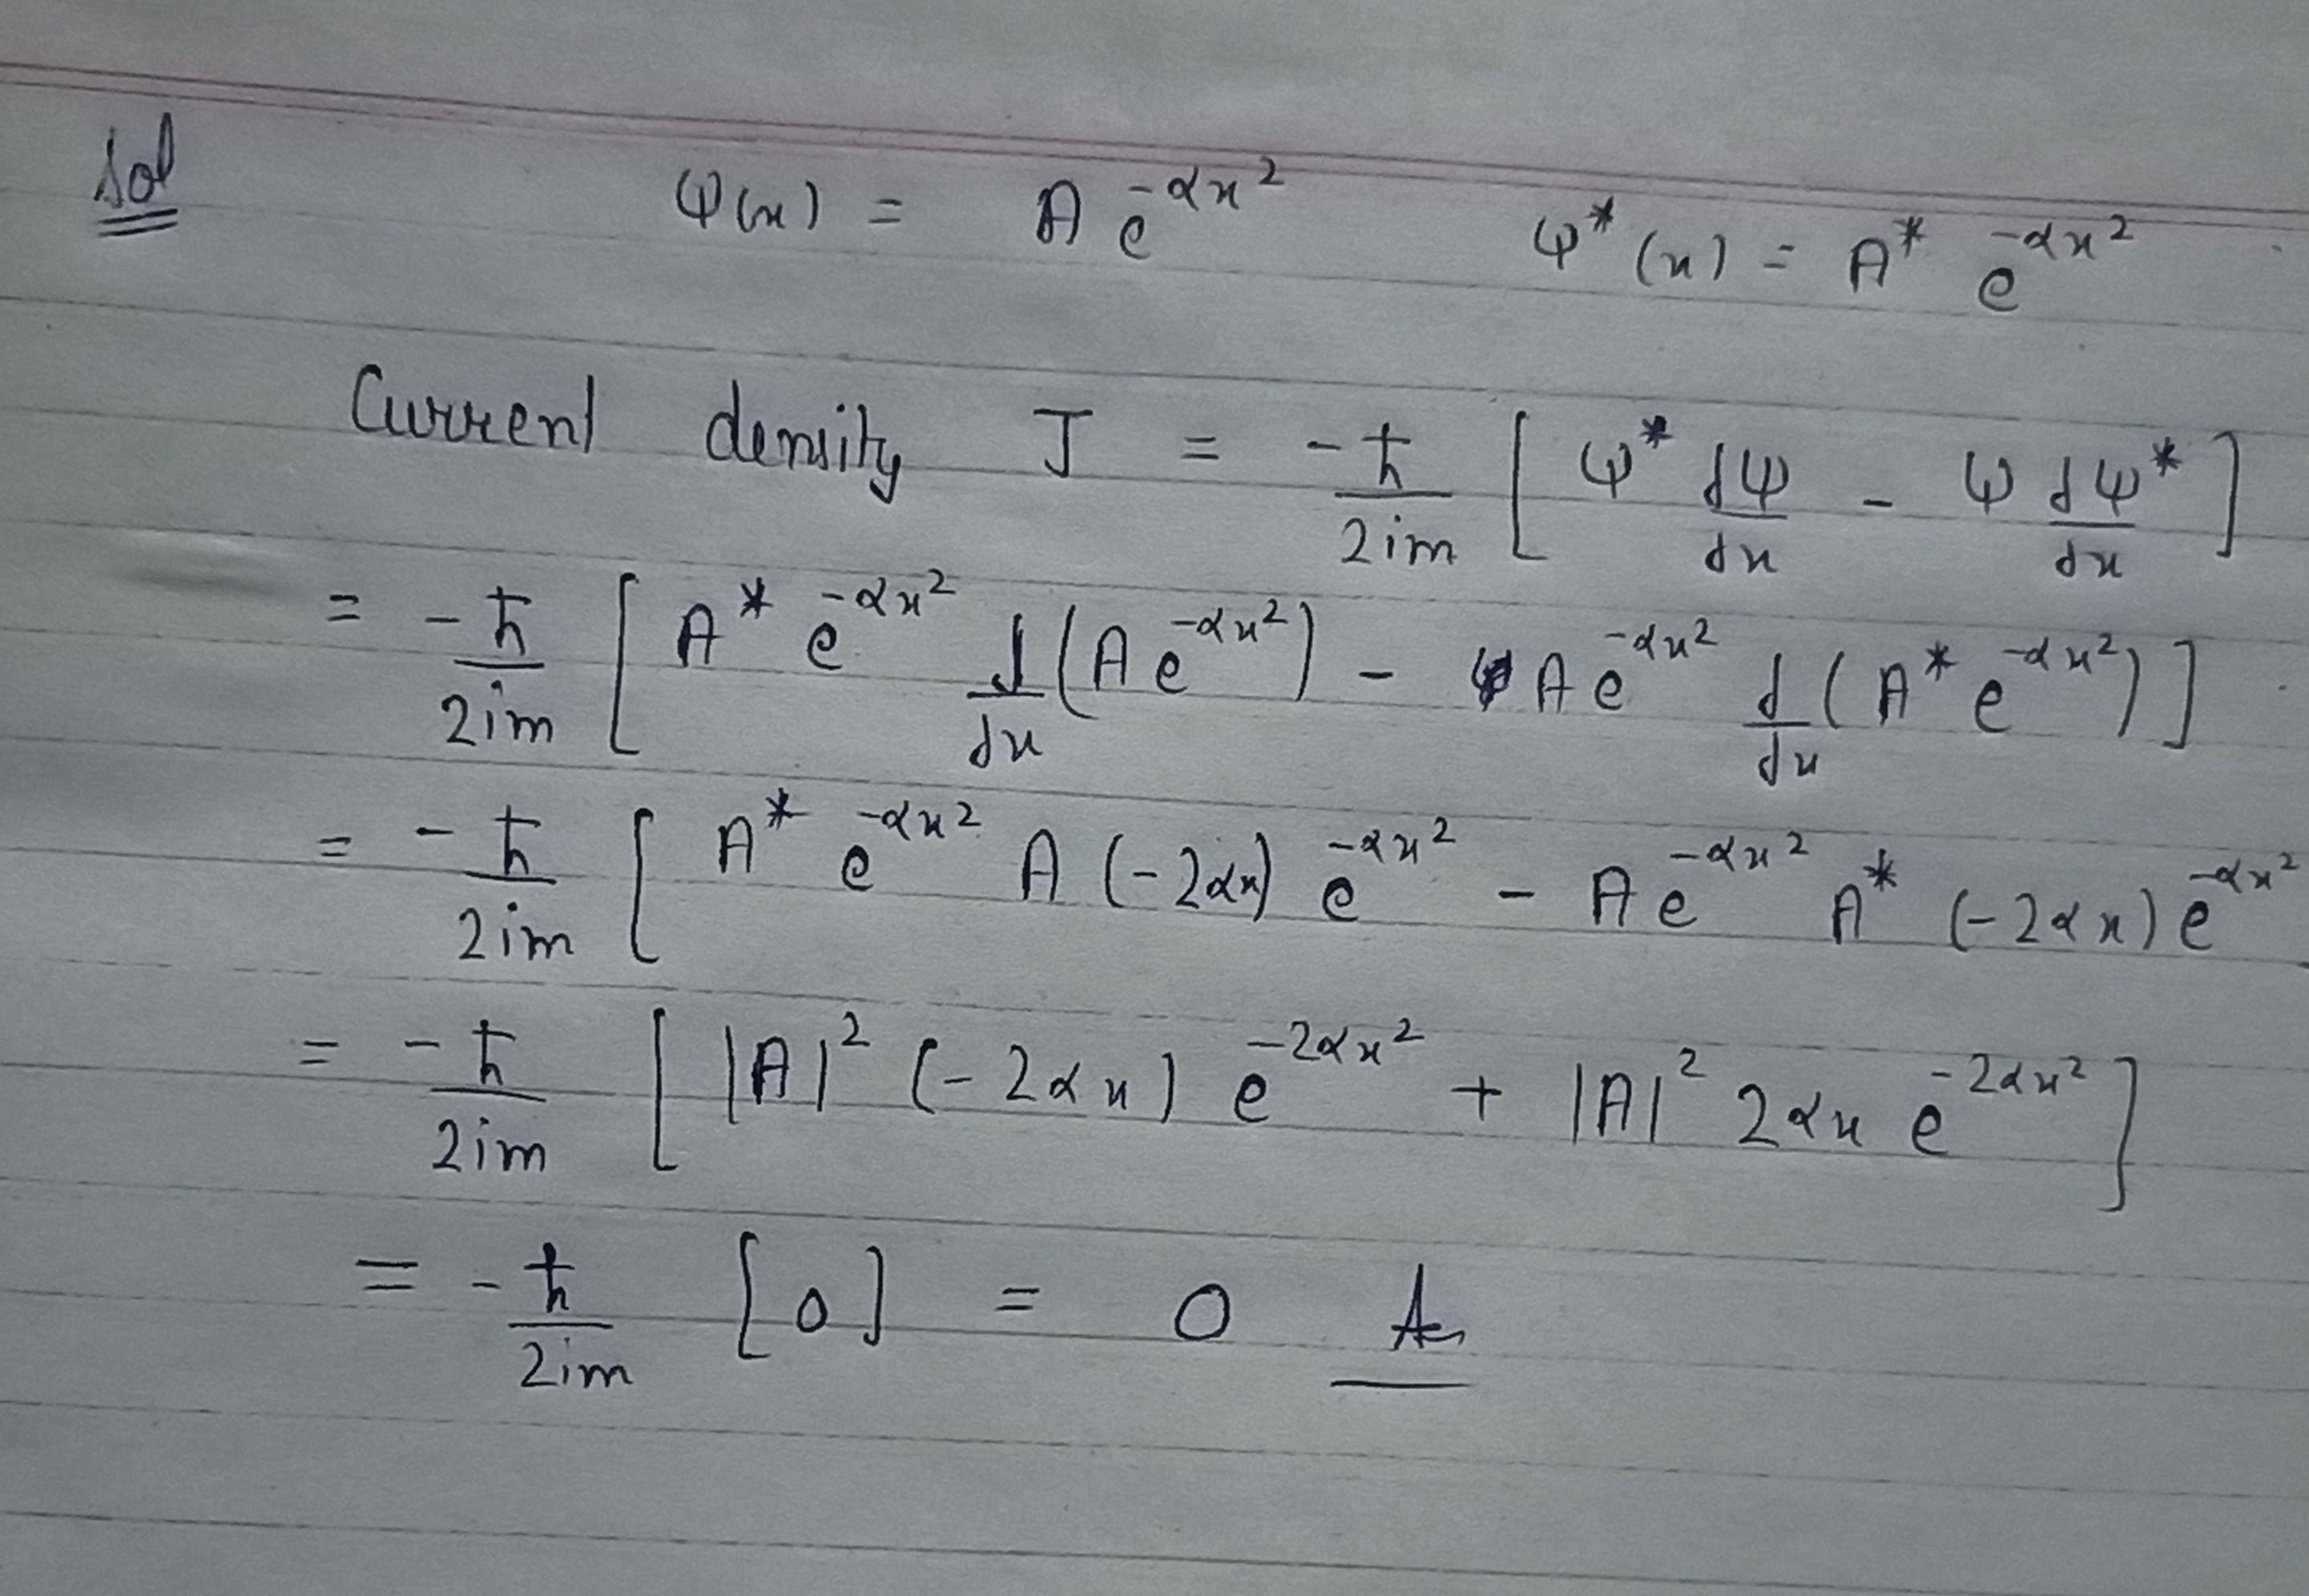 Sol ψ(x) = A e^{-αx^2} ψ*(x) = A* e^{-αx^2}
Current density J = -ħ/2im [ψ* dψ/dx - ψ dψ*/dx]
= -ħ/2im [A* e^{-αx^2} d/dx (A e^{-αx^2}) - A e^{-αx^2} d/dx (A* e^{-αx^2})]
= -ħ/2im [A* e^{-αx^2} A (-2αx) e^{-αx^2} - A e^{-αx^2} A* (-2αx) e^{-αx^2}
= -ħ/2im [|A|^2 (-2αx) e^{-2αx^2} + |A|^2 2αx e^{-2αx^2}]
= -ħ/2im [0] = 0 A